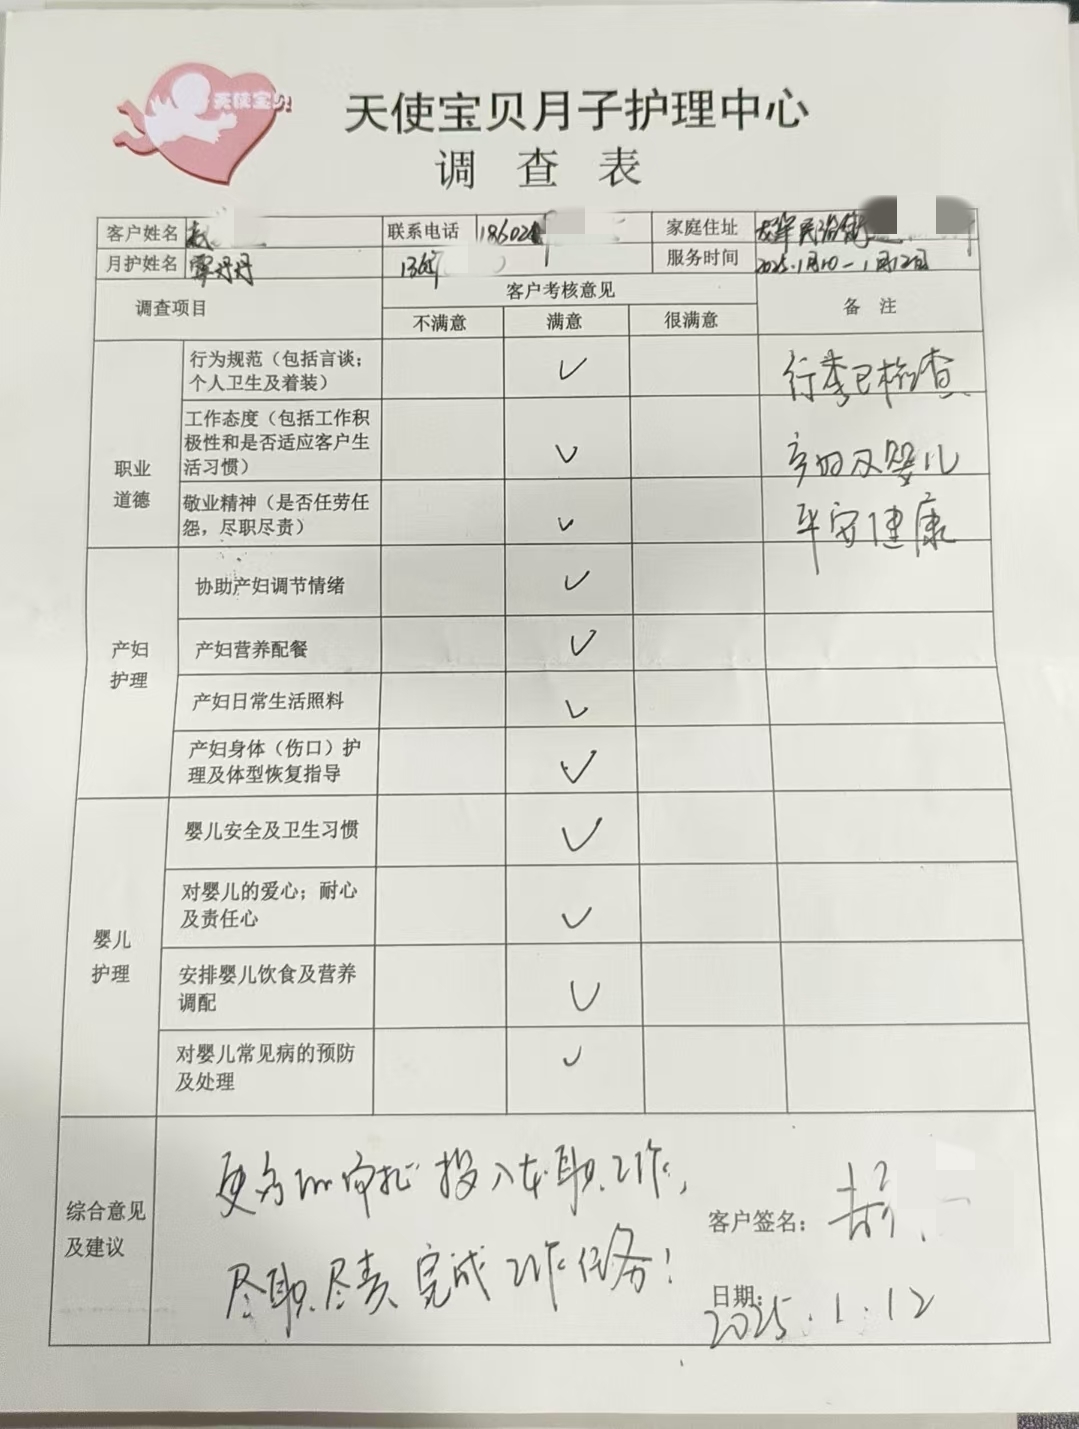 天使宝贝
天使宝贝月子护理中心
调 查 表
客户姓名 联系电话 18602 家庭住址
月护姓名 覃丹丹 服务时间 2025.1月10-1月12日
调查项目 客户考核意见 备 注
不满意 满意 很满意
职业
道德
行为规范（包括言谈；
个人卫生及着装） ✓ 行李已检查
工作态度（包括工作积
极性和是否适应客户生
活习惯） ✓ 产妇及婴儿
敬业精神（是否任劳任
怨，尽职尽责） ✓ 平安健康
产妇
护理
协助产妇调节情绪 ✓
产妇营养配餐 ✓
产妇日常生活照料 ✓
产妇身体（伤口）护
理及体型恢复指导 ✓
婴儿
护理
婴儿安全及卫生习惯 ✓
对婴儿的爱心；耐心
及责任心 ✓
安排婴儿饮食及营养
调配 ✓
对婴儿常见病的预防
及处理 ✓
综合意见
及建议
更 投入本职工作，
尽职尽责完成工作任务！
客户签名：
日期：
2025.1.12